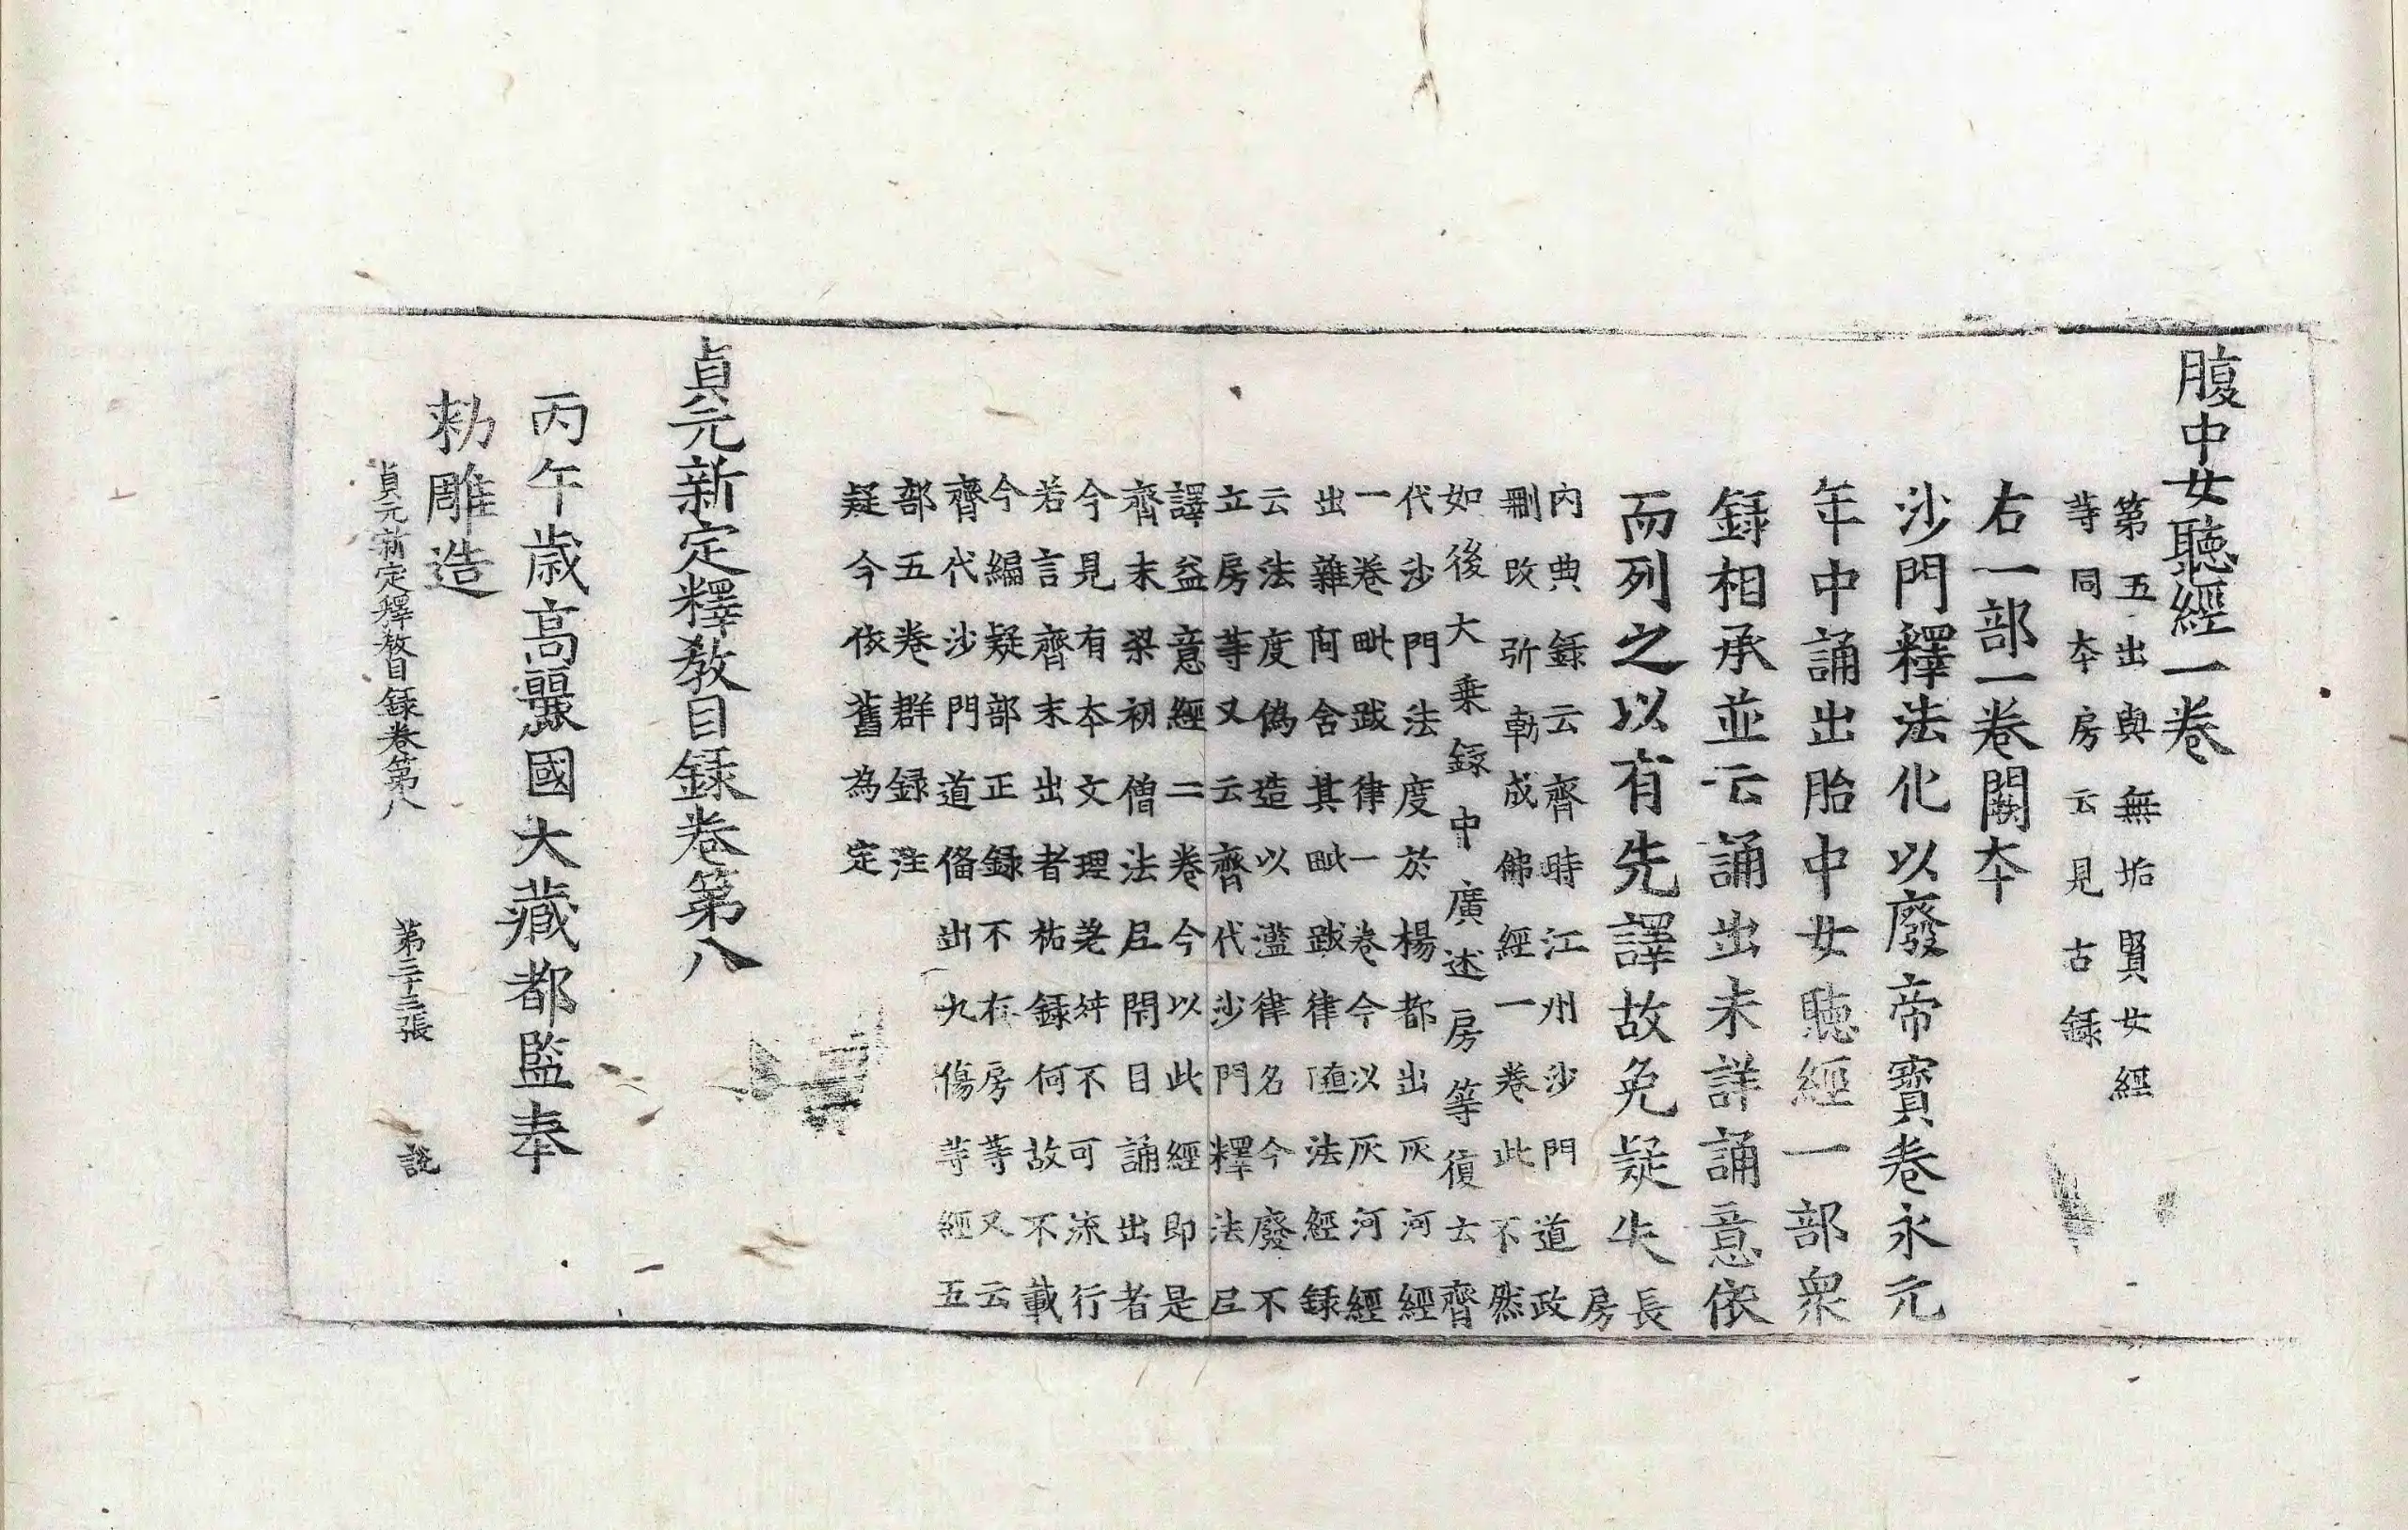 腹中女聽經一卷
第五出與無垢賢女經
等同夲房云見古録
右一部一卷闕夲
沙門釋法化以廢帝寶卷永元
年中誦出胎中女聽經一部衆
録相承並云誦出未詳誦意依
而列之以有先譯故免疑失長
房
內典録云齊時江州沙門道政
刪改弥勒成佛經一卷此不然
如後大乗録中廣述房等復云齊
代沙門法度於楊都出灰河經
一卷毗跋律一卷今以灰河經
出雜阿含其毗跋律隨法經録
云法度偽造以濫律名今廢不
立房等又云齊代沙門釋法尼
譯益意經二卷今以此經即是
齊末梁初僧法尼閇目誦出者
今見有夲文理差舛不可流行
若言齊末出者祐録何故不載
今編疑部正録不存房等又云
齊代沙門道俻出九傷等經五
部五卷群録注
疑今依舊為定
貞元新定釋教目録卷第八
丙午歳高麗國大藏都監奉
勑雕造
貞元新定釋教目録卷第八 第三十三張